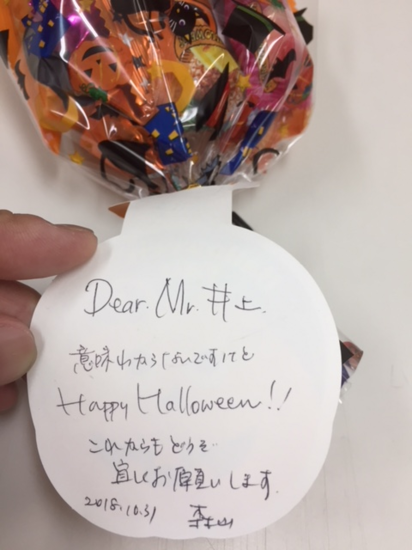 Dear. Mr. 井上.
意味わからないですけど
Happy Halloween!!
これからもどうぞ
宜しくお願いします.
2018.10.31 森山